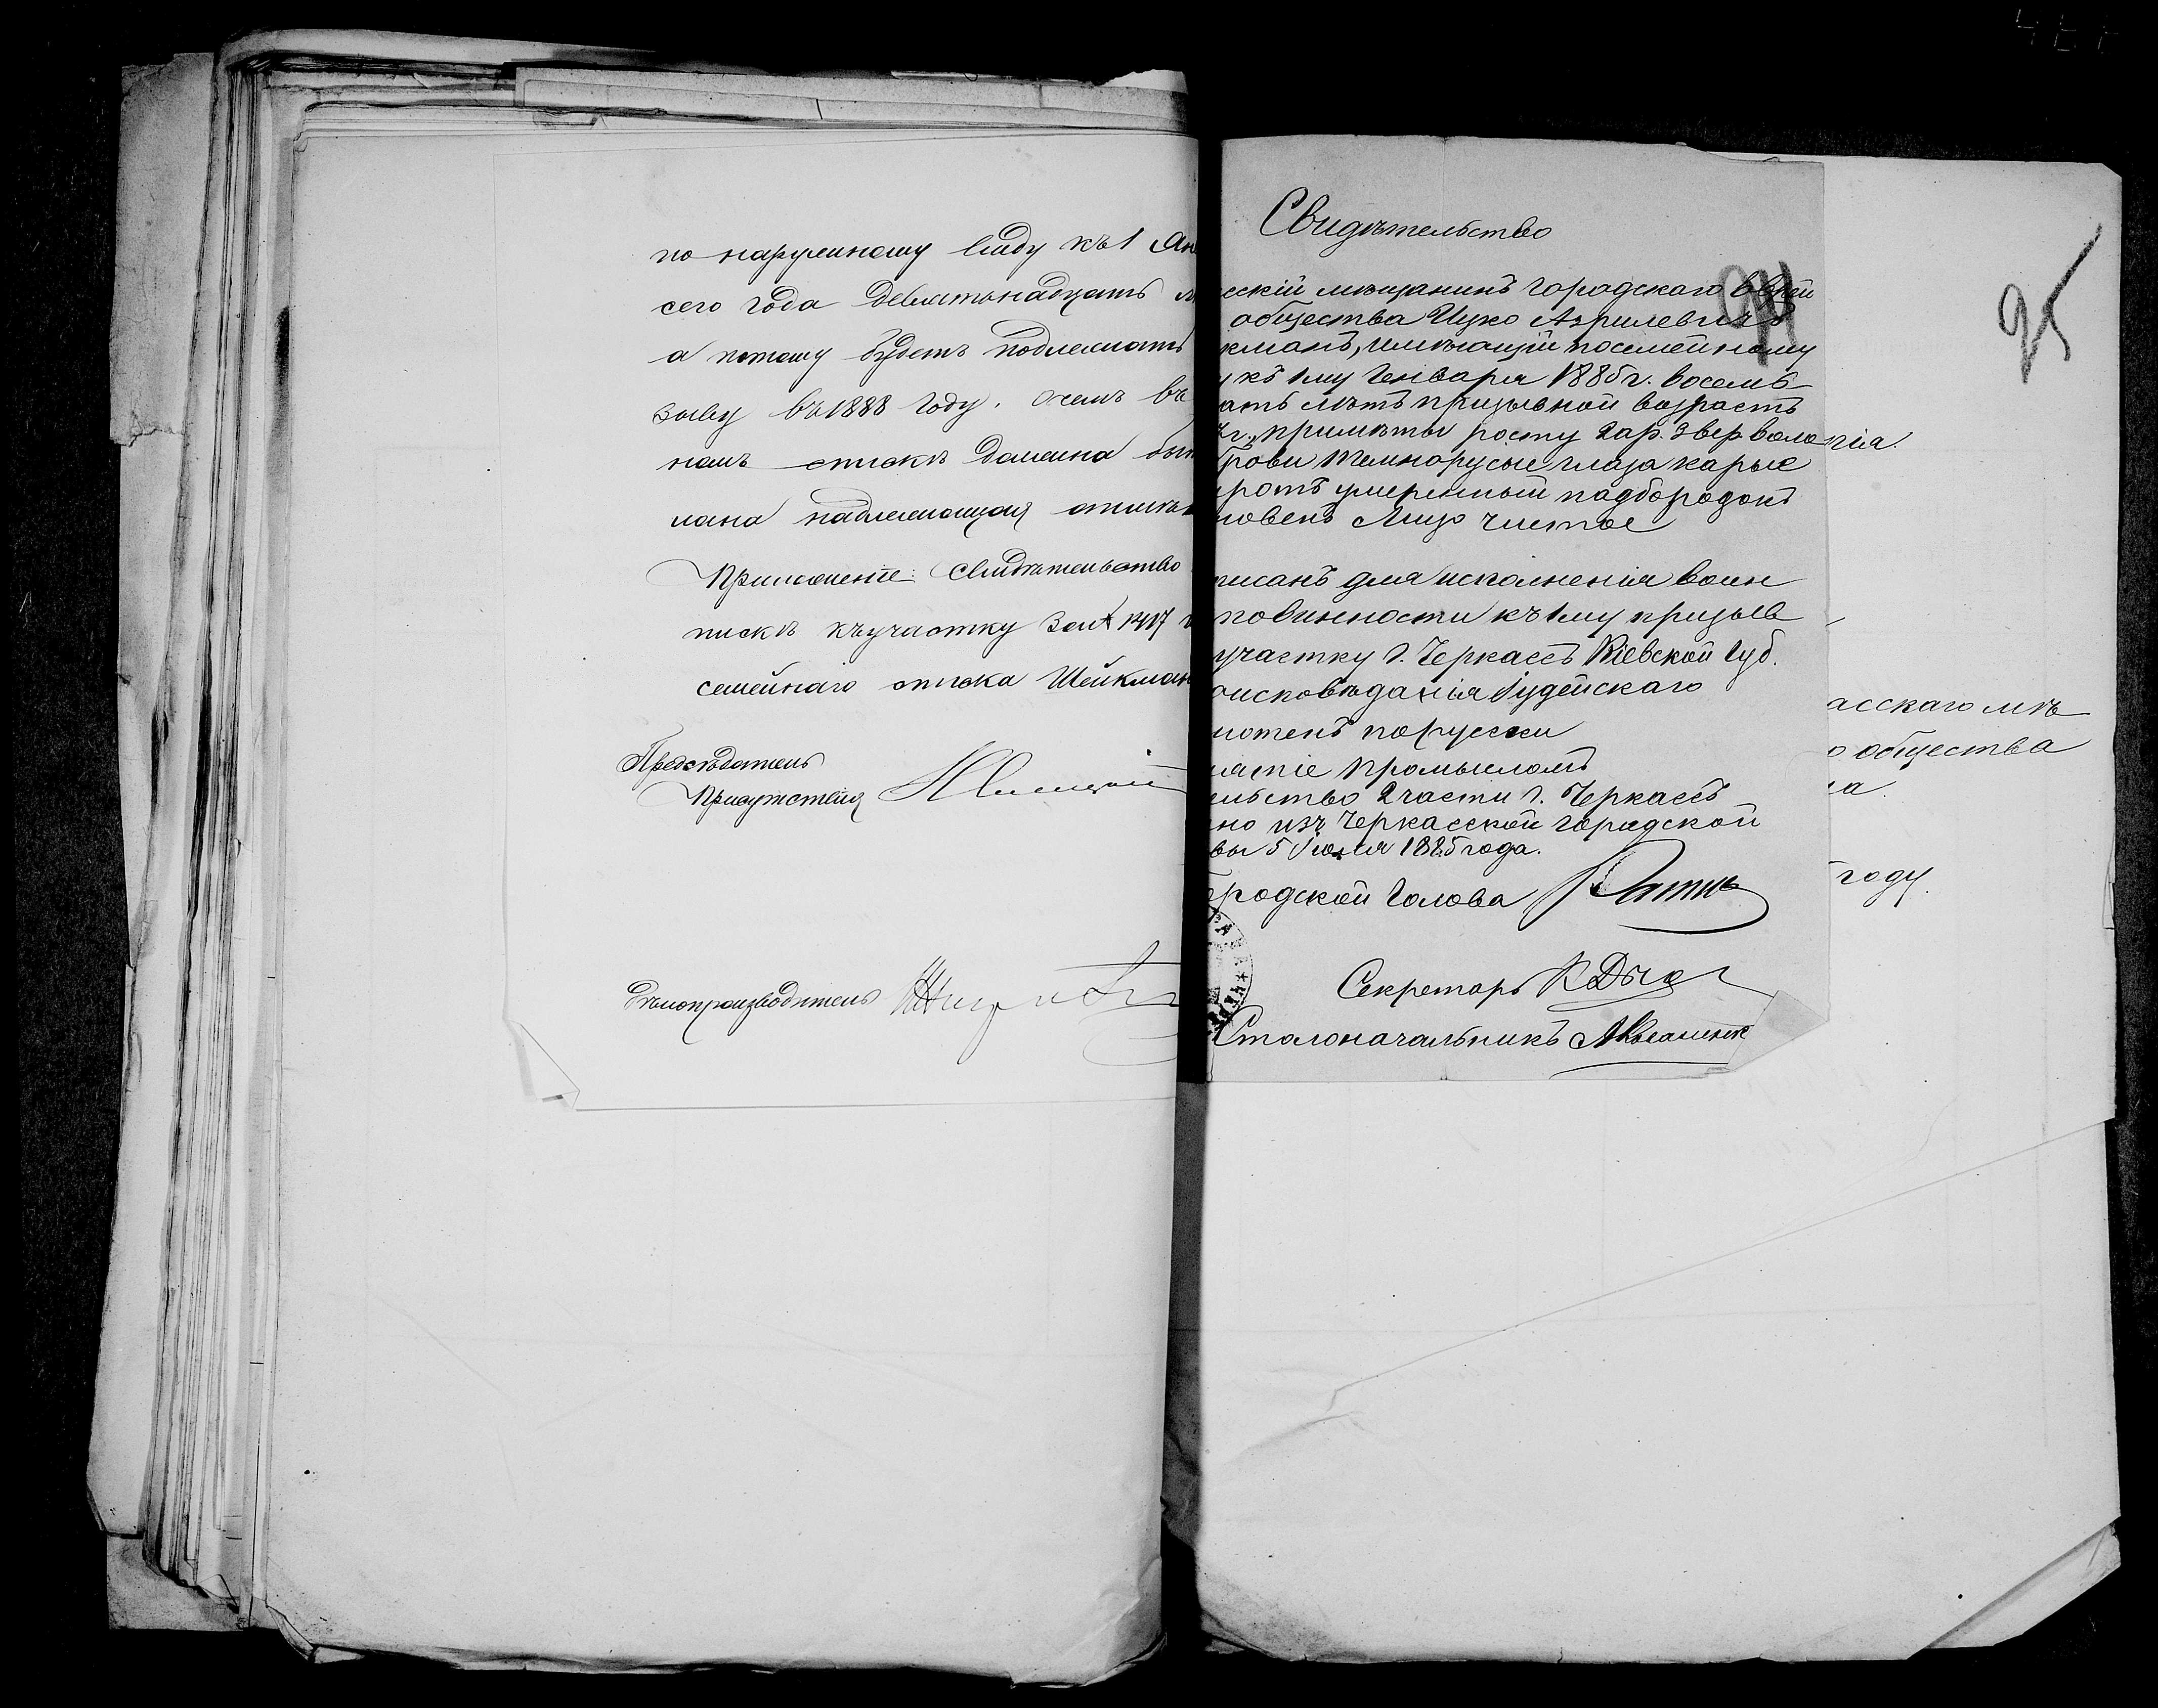 по наружному виду къ 1 Ян
сего года девятьнадцать л
а потому будетъ подлежать
зыву въ 1888 году. О чемъ въ
номъ спискѣ должна быт
лана надлежащая отмѣт
Приложеніе: Свидѣтельство
пискѣ къ участку за № 1417
семейнаго списка Шейкман
Предсѣдатель
Присутствія
Дѣлопроизводитель
Свидѣтельство
сскій мѣщанинъ городскаго еврей
общества Ицко Азрилевичъ
кманъ, имѣющій по семейному
къ 1му Генваря 1885 г. восемь
ать лѣтъ призывной возрастъ
г., примѣты росту 2 ар. 3 вер. воло
брови темнорусые глаза карые
ротъ умеренный падбородокъ
новенъ Лицо чистое
писанъ для исполненія воин
повинности къ 1му призыв
участку г. Черкассъ Кіевской Губ.
оисповѣданія Іудейскаго
мотенъ порусски
нятіе промысломъ
ельство 2 части г. Черкассъ
но изъ Черкасской городской
вы 5 Іюля 1885 года.
ородской Голова
Секретарь
Столоначальникъ
25
гіа.
асскаго мѣ
о общества
а.
году.